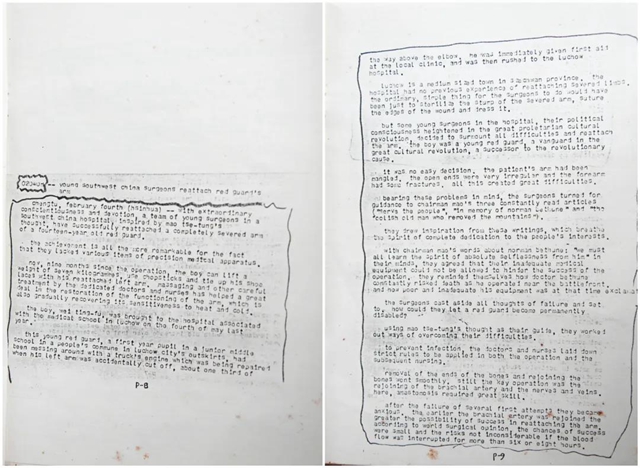 -- young southwest china surgeons reattach red guard's
arm
chengtu, february fourth (hsinhua) -- with extraordinary
conscientiousness and devotion, a team of young surgeons in a
southwest china hospital, inspired by mao tse-tung's
thought, have successfully reattached a completely severed arm
of a fourteen-year-old red guard.
the achievement is all the more remarkable for the fact
that they lacked various items of precision medical apparatus.
now, nine months since the operation, the boy can lift a
weight of seven kilogrammes, use chopsticks and tie up his shoe
laces with his reattached left arm. massaging and other careful
treatment by the dedicated doctors and nurses has helped a great
deal in the restoration of the functioning of the arm, which is
also gradually recovering its sensitiveness to heat and cold.
the boy, was brought to the hospital associated
with the medical school in luchow on the fourth of may last
year.
this young red guard, a first year pupil in a junior middle
school in a people's commune in luchow city's outskirts, had
been messing around with a truck's engine which was being repaired
when his left arm was accidentally cut off, about one third of
P-8
the way above the elbow. he was immediately given first aid
at the local clinic, and was then rushed to the luchow
hospital.
luchow is a medium sized town in szechwan province. the
hospital had no previous experience of reattaching severed limbs.
the ordinary, simple thing for the surgeons to do would have
been just to sterilize the stump of the severed arm, suture
the edges of the wound and dress it.
but some young surgeons in the hospital, their political
consciousness heightened in the great proletarian cultural
revolution, decided to surmount all difficulties and reattach
the arm. the boy was a young red guard, a vanguard in the
great cultural revolution, a successor to the revolutionary
cause.
it was no easy decision. the patient's arm had been
mangled. the open ends were very irregular and the forearm
had some fractures. all this created great difficulties.
bearing these problems in mind, the surgeons turned for
guidance to chairman mao's three constantly read articles
("serve the people", "in memory of norman bethune" and "the
foolish old man who removed the mountains").
they drew inspiration from these writings, which breathe
the spirit of complete dedication to the people's interests.
with chairman mao's words about norman bethune: "we must
all learn the spirit of absolute selflessness from him" in
their minds, they agreed that their inadequate medical
equipment could not be allowed to hinder the success of the
operation. they reminded themselves how doctor bethune
constantly risked death as he operated near the battlefront,
and how poor and inadequate his equipment was at that time
the surgeons cast aside all thoughts of failure and set
to. how could they let a red guard become permanently
disabled?
using mao tse-tung's thought as their guide, they worked
out ways of overcoming their difficulties.
to prevent infection, the doctors and nurses laid down
strict rules to be applied in both the operation and the
subsequent nursing.
removal of the ends of the bones and rejoining the
bones went smoothly. still the key operation was the
rejoining of the brachial artery and the nerves and veins.
here, anastomosis required great skill.
after the failure of several first attempts they became
anxious. the earlier the brachial artery was rejoined the
greater the possibility of success in reattaching the arm.
according to world surgical opinion, the chances of success
were small and the risks not inconsiderable if the blood
flow was interrupted for more than six or eight hours.
P-9